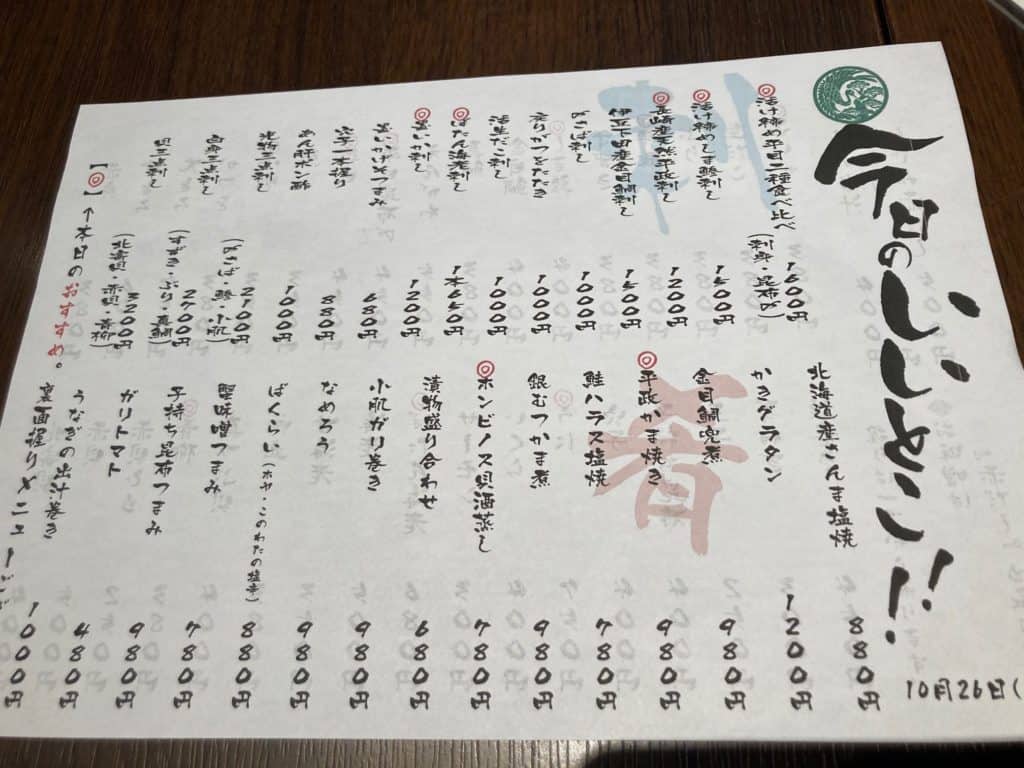 今日のいいとこ!!
10月26日(
活け締め平目二種食べ比べ
(刺身・昆布〆)
1600円
活け締めしま鯵刺し
1400円
長崎産天然平政刺し
1200円
伊豆下田産金目鯛刺し
1400円
〆さば刺し
1000円
戻りがつをたたき
1000円
活生だこ刺し
1000円
ぼたん海老刺し
1本640円
すみいか刺し
1200円
680円
880円
あん肝ポン酢
1000円
光物三点刺し
(〆さば・鯵・小肌)
2100円
白身三点刺し
(すずき・ぶり・真鯛)
2600円
貝三点刺し
(北寄貝・赤貝・青柳)
3200円
【◎】↑本日のおすすめ。
北海道産さんま塩焼
880円
かきグラタン
1200円
金目鯛兜煮
980円
平政かま焼き
980円
鮭ハラス塩焼
780円
銀むつかま煮
980円
ホンビノス貝酒蒸し
780円
漬物盛り合わせ
680円
小肌ガリ巻き
980円
なめろう
980円
ばくらい(ホヤ・このわたの塩辛)
880円
蟹味噌つまみ
880円
子持ち昆布つまみ
780円
ガリトマト
980円
うなぎの出汁巻き
480円
1000円
裏面握りメニュー